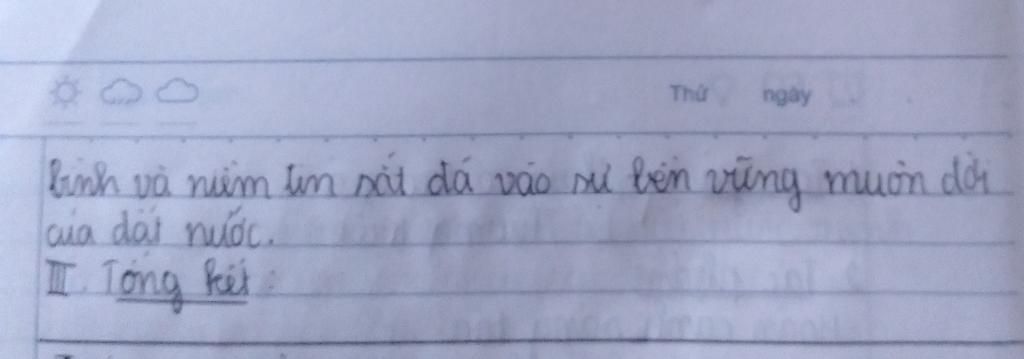 Thứ ngày
bình và niềm tin sắt đá vào sự bền vững muôn đời
của đất nước.
III. Tổng kết: